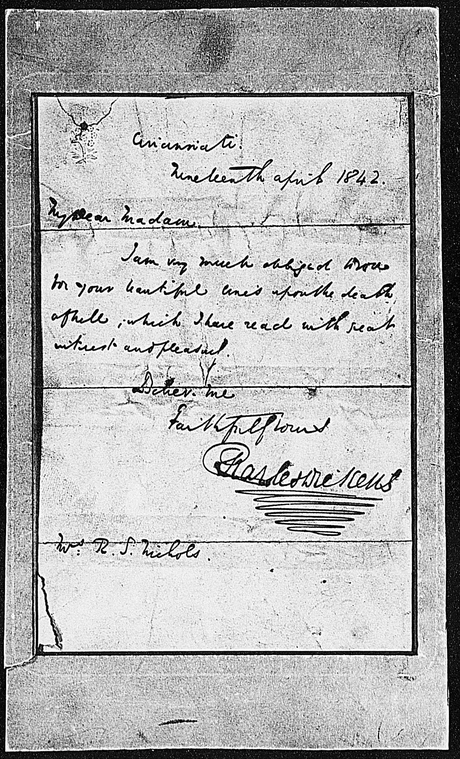 Cincinnati.
Nineteenth April 1842.
My dear Madam.
I am very much obliged to you
for your beautiful lines upon the death
of Nell, which I have read with great
interest and pleasure.
Believe me
Faithfully Yours
Charles Dickens
Mrs R. S. Nichols.